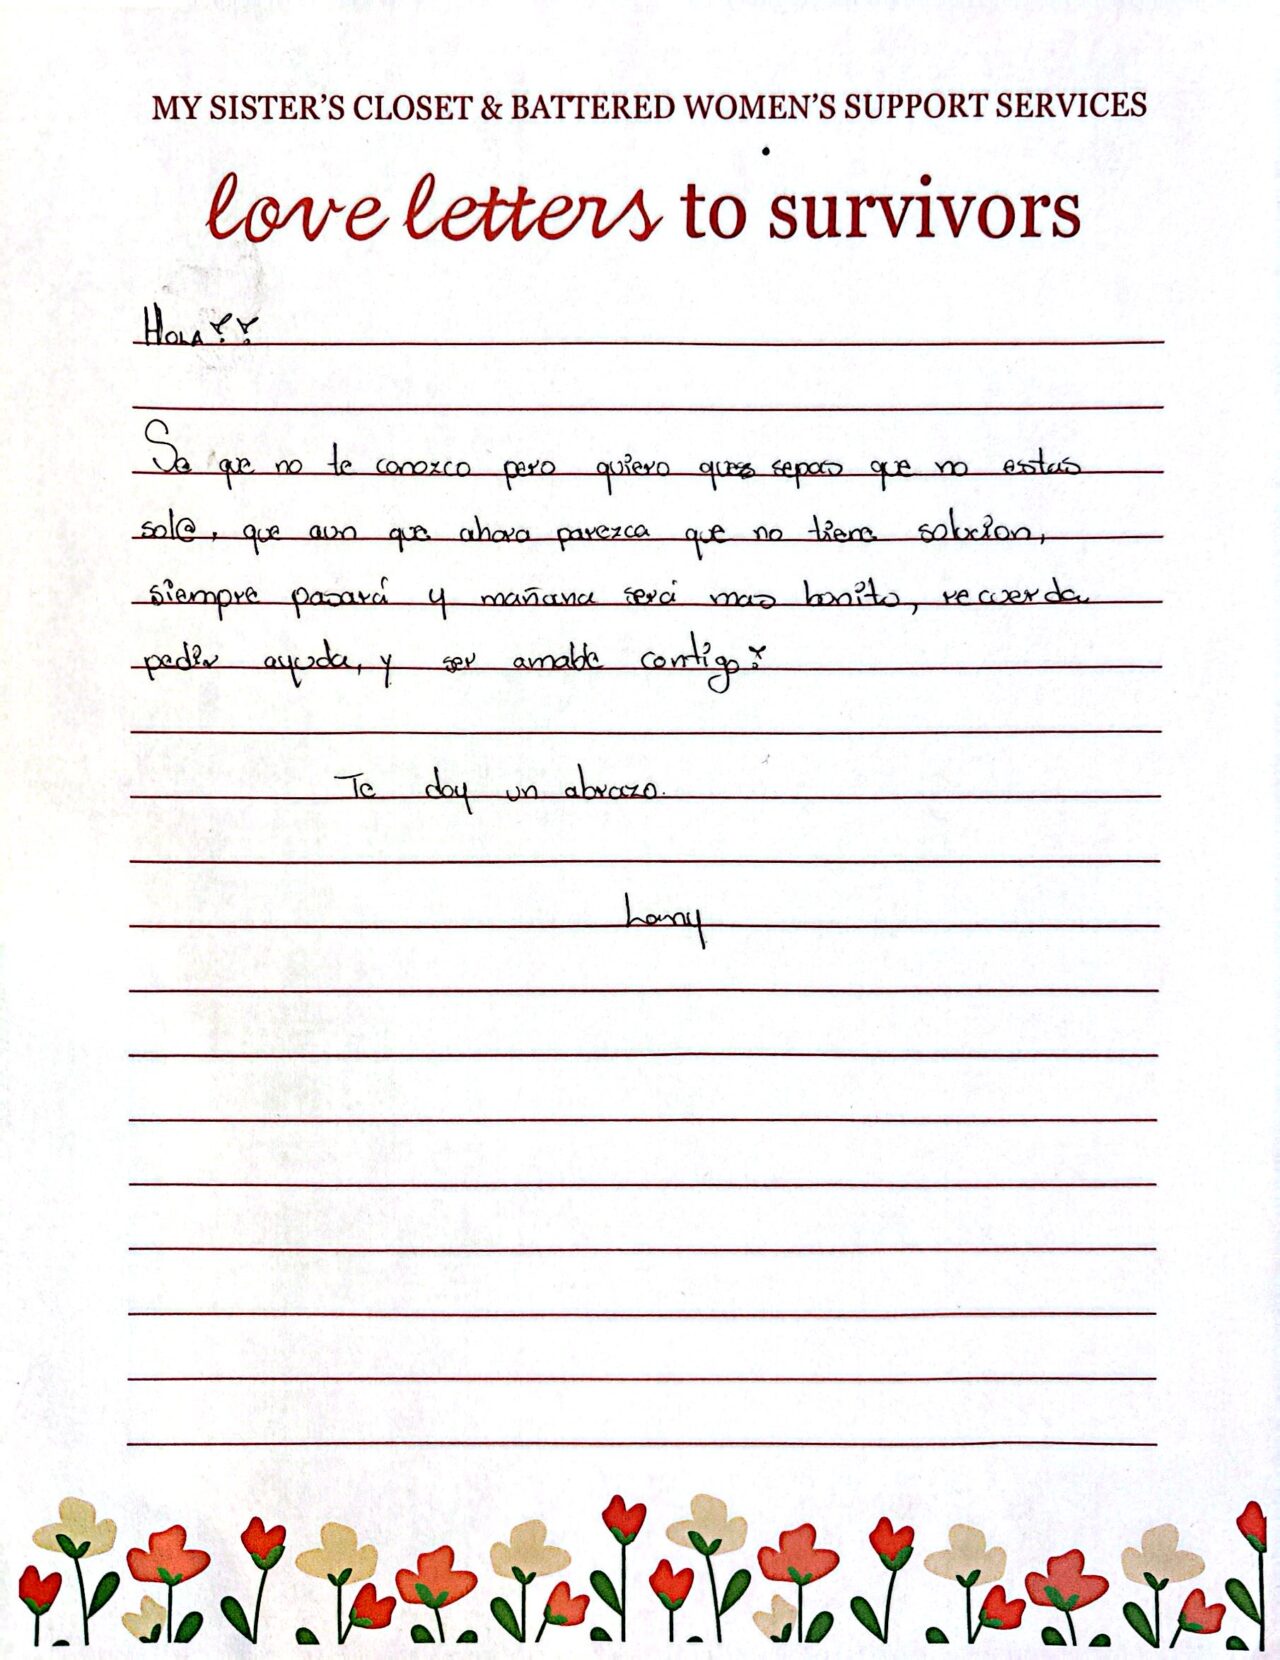 MY SISTER'S CLOSET & BATTERED WOMEN'S SUPPORT SERVICES
love letters to survivors
HOLA!!
Se que no te conozco pero quiero que sepas que no estas
sol@, que aun que ahora parezca que no tiene solucion,
siempre pasará y mañana será mas bonito, recuerda
pedir ayuda, y ser amable contigo!
Te doy un abrazo.